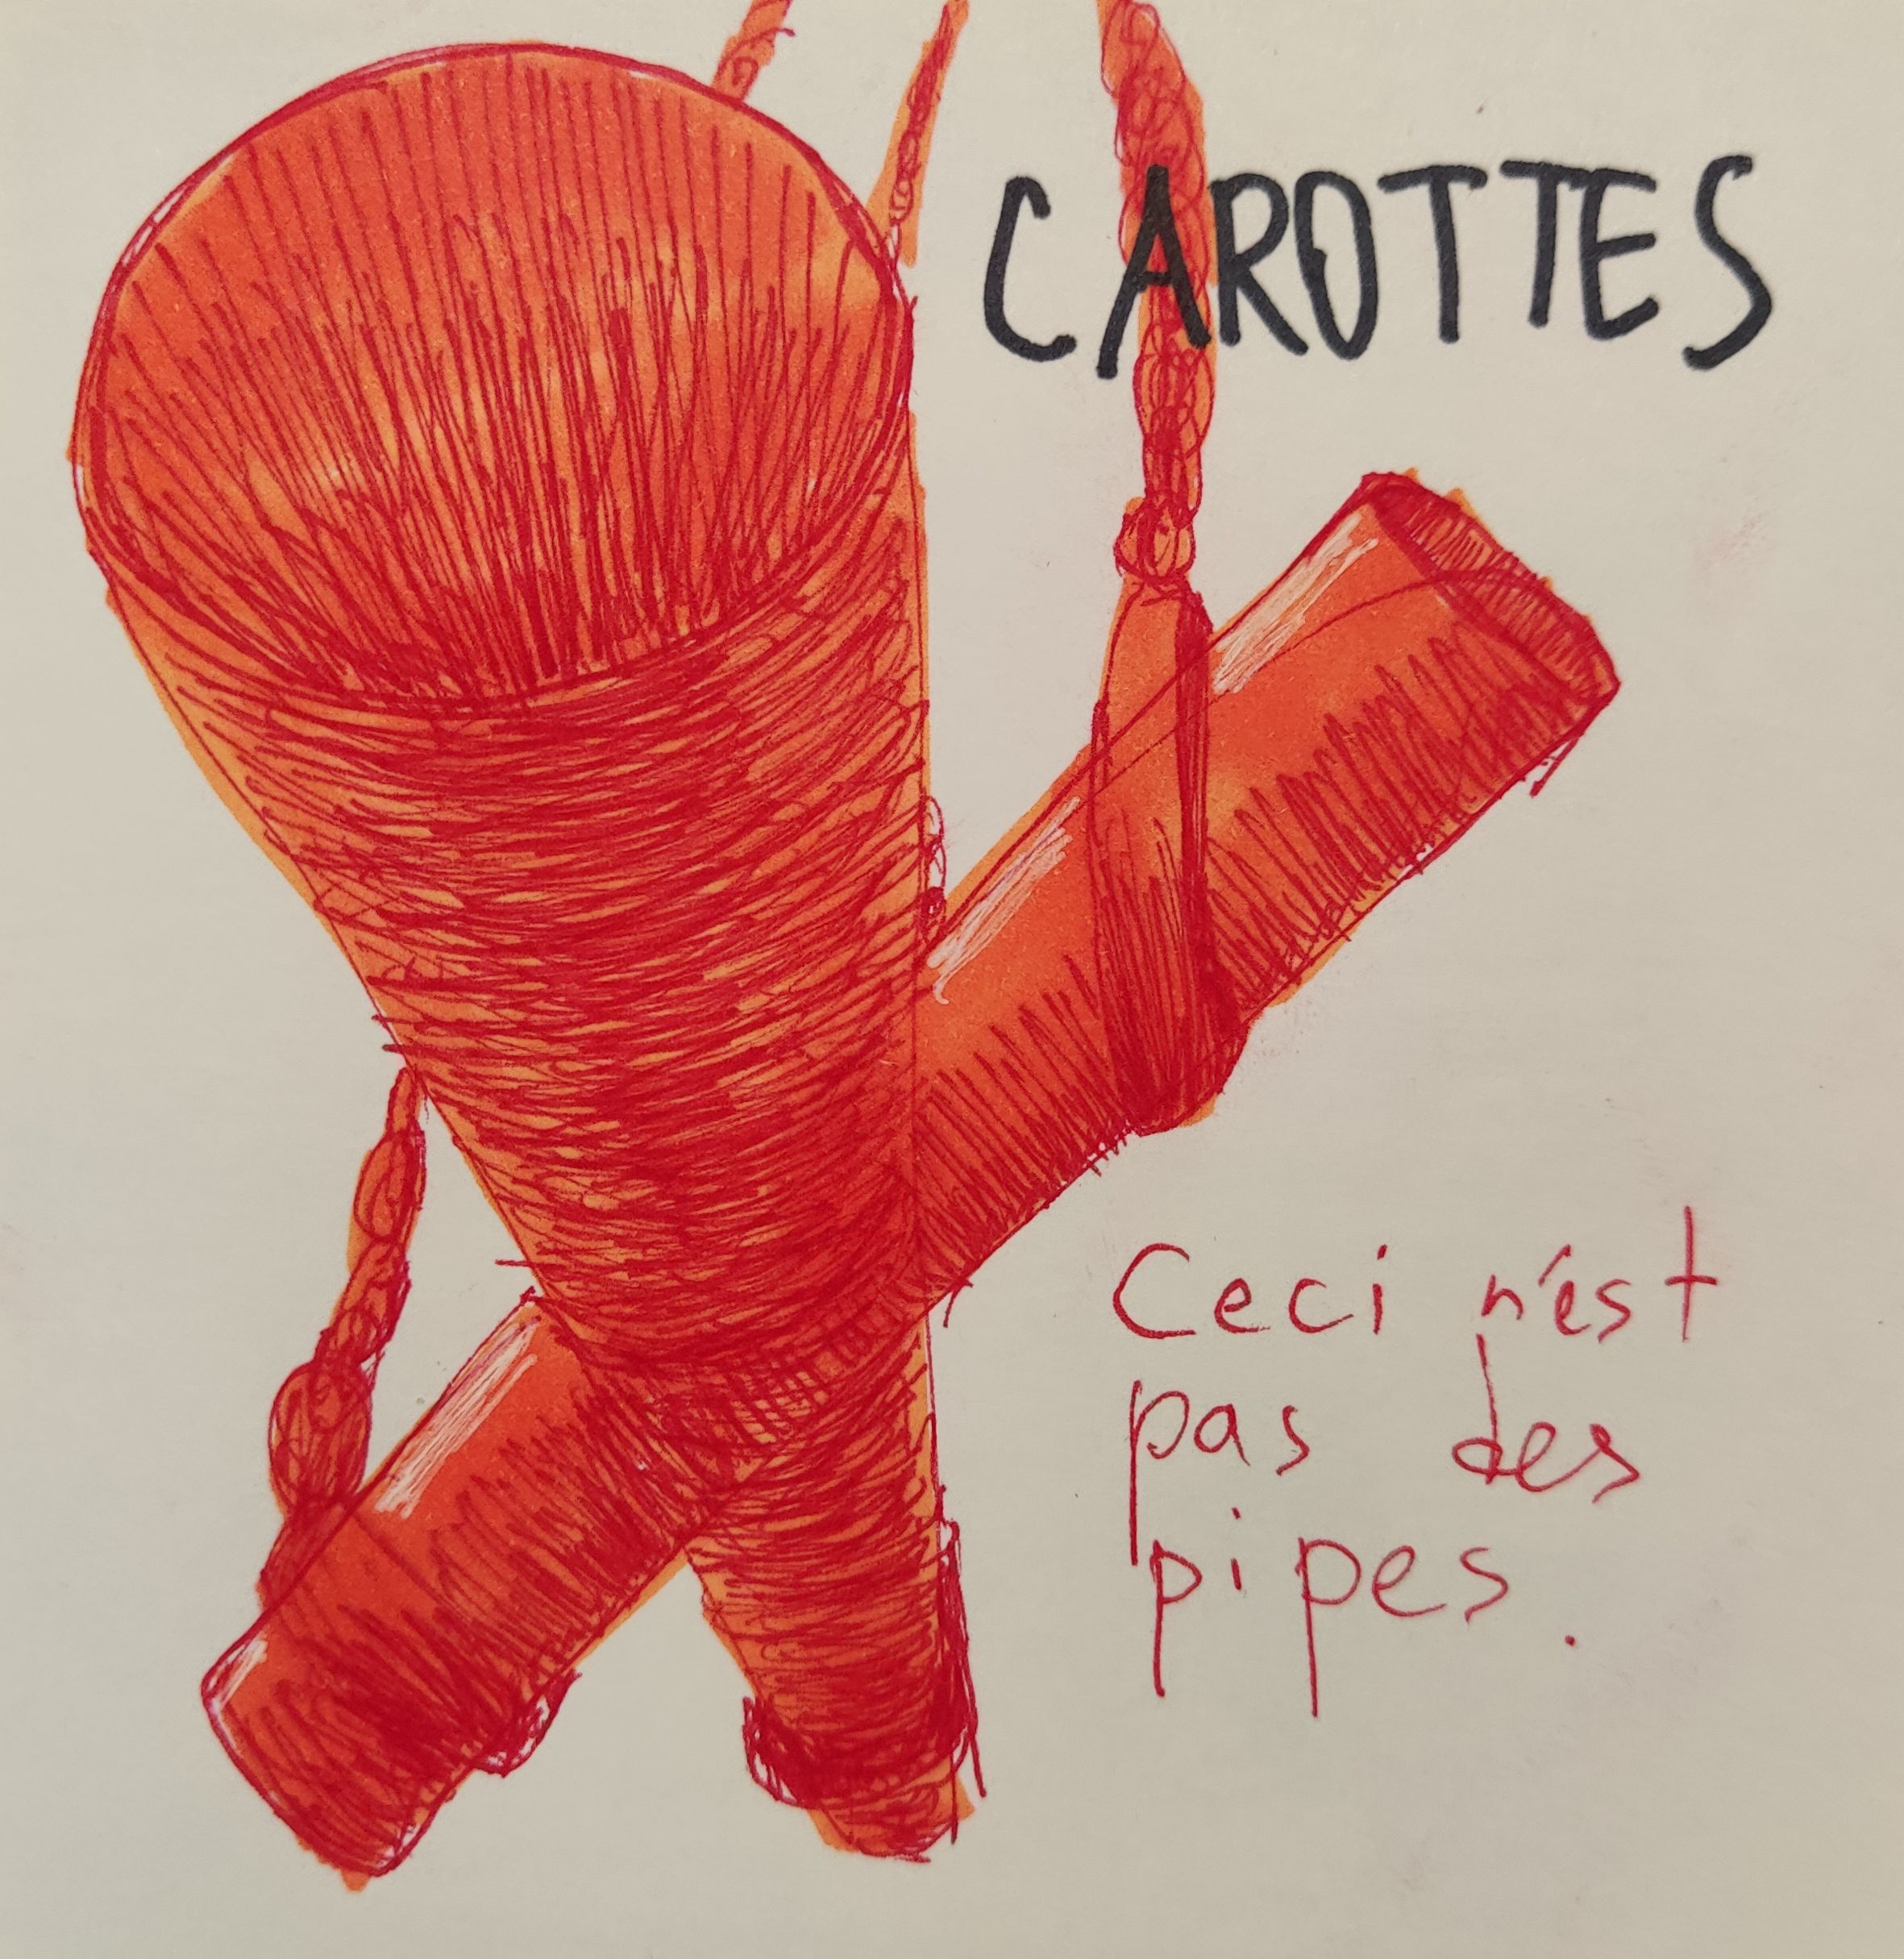 CAROTTES
Ceci n'est
pas des
pipes.